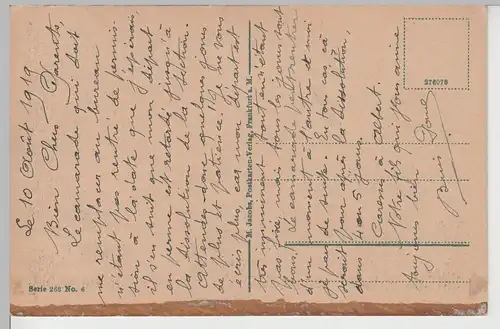 Le 10 Août 1919
Bien Chers Parents,
Le camarade qui doit
me remplacer au bureau
n'étant pas rentré de permis-
sion à la date que j'espérais,
il s'en suit que mon départ
en perme est retardé jusqu'à
la dissolution de la Section.
Attendez donc quelques jours
de plus et patience. Je ne vous
écris plus car mon départ est
très imminent tout en n'étant
pas fixé, mais tous les jours sont
bons. Le camarade peut rentrer
d'un moment à l'autre et moi
je pars de suite. En tous cas ça
serait pour après la dissolution,
dans 4 ou 5 jours.
à Albert.
Votre fils qui vous aime
toujours bien
M. Jacobs, Postkarten-Verlag, Frankfurt a. M.
276078
Serie 266 No. 6